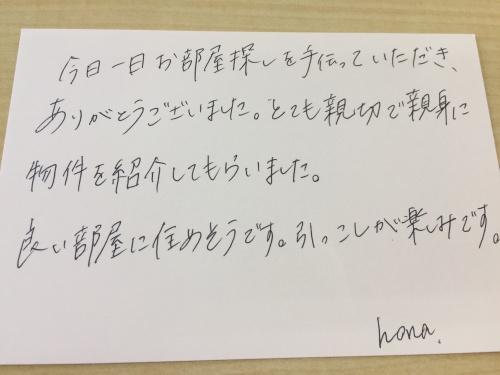 今日一日お部屋探しを手伝っていただき、
ありがとうございました。とても親切で親身に
物件を紹介してもらいました。
良い部屋に住めそうです。引っこしが楽しみです。
hona.